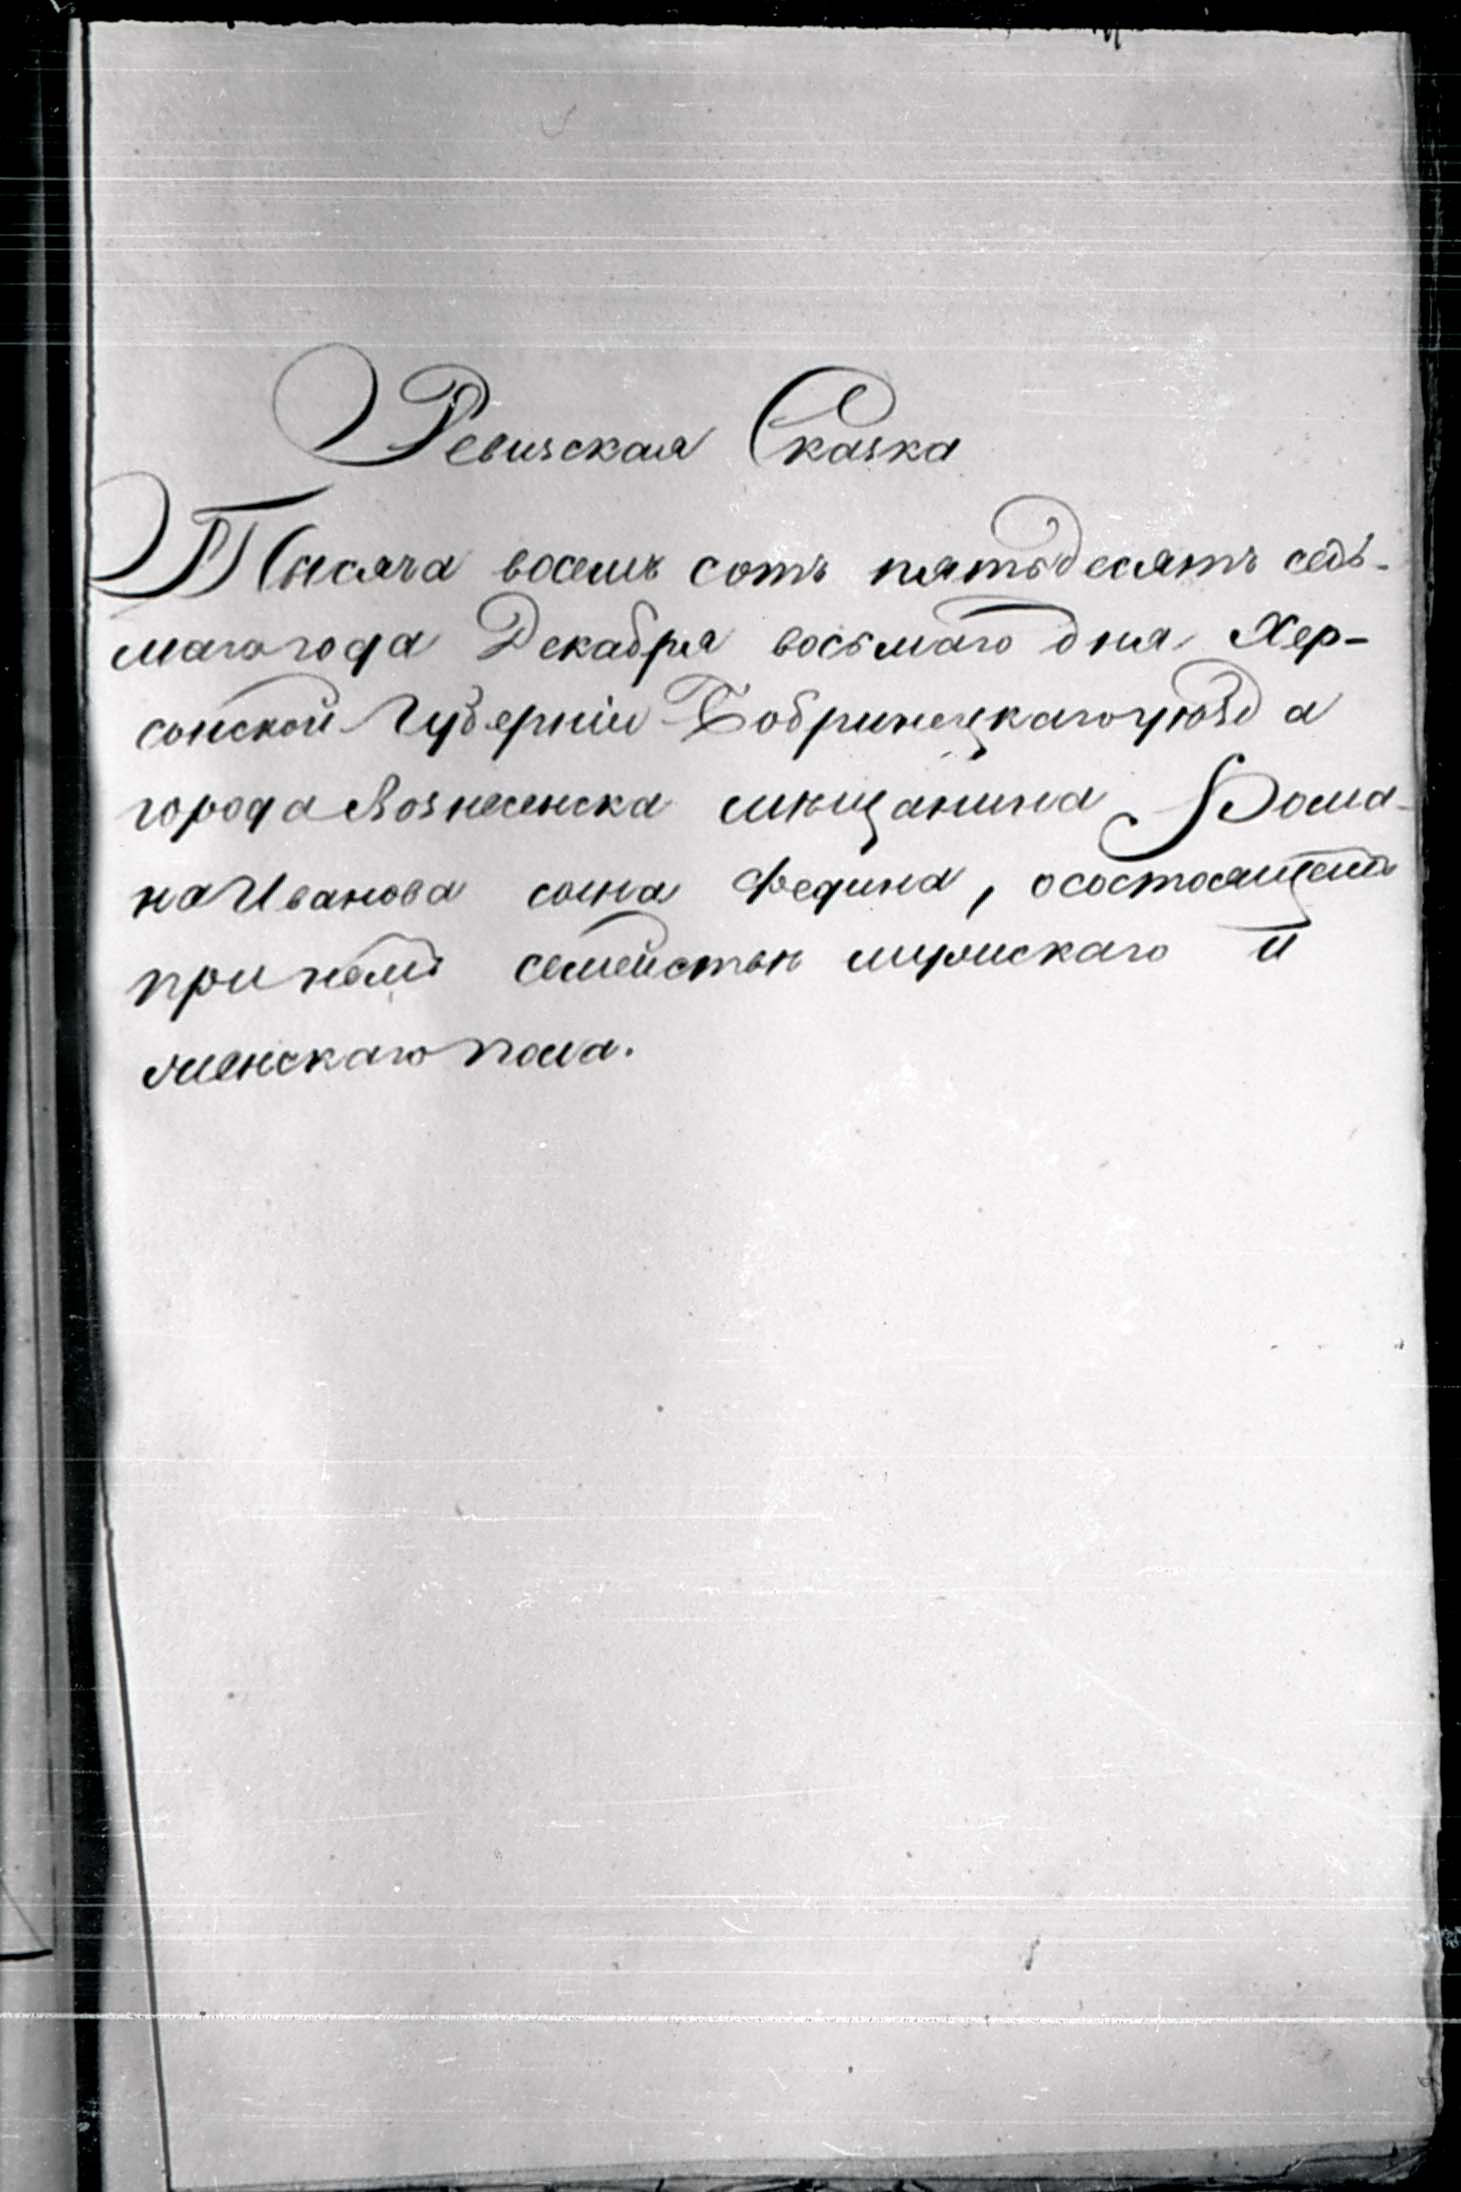 Ревизская Сказка
Тысяча восемь сотъ пятьдесятъ седь-
маго года Декабря восьмаго дня Хер-
сонской Губерніи Бобринецкаго уѣзда
города Вознесенска мѣщанина Рома-
на Иванова сына Федина, о состоящемъ
при немъ семействѣ мужскаго и
женскаго пола.